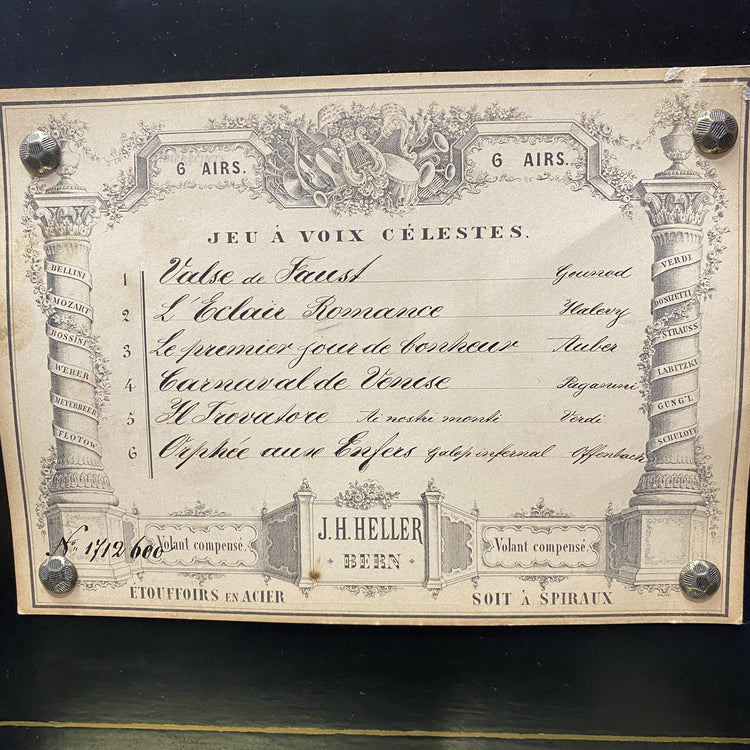 6 AIRS.
6 AIRS.
JEU À VOIX CÉLESTES.
1 Valse de Faust Gounod
2 L'Eclair Romance Halevy
3 Le premier jour de bonheur Auber
4 Carnaval de Venise Paganini
5 Il Trovatore Ai nostri monti Verdi
6 Orphée aux Enfers Galop infernal Offenbach
BELLINI
MOZART
ROSSINI
WEBER
MEYERBEER
FLOTOW
VERDI
DONIZETTI
STRAUSS
LABITZKI
GUNG'L
SCHULOFF
J.H. HELLER
BERN
No. 1712600
Volant compensé.
Volant compensé.
ETOUFFOIRS EN ACIER
SOIT À SPIRAUX